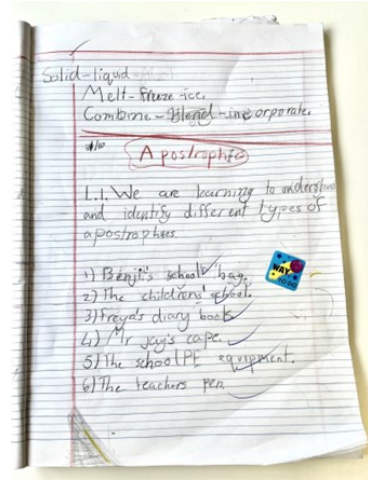 Solid-liquid
Melt-freeze-ice.
Combine-blend-incorporate.
Apostrophe
L.I. We are learning to understand
and identify different types of
apostrophies
1) Benji's school bag.
2) The childrens' school.
3) Freya's diary book
4) Mr Jay's cape.
5) The school PE equipment.
6) The teachers pen.
WAY
TO GO